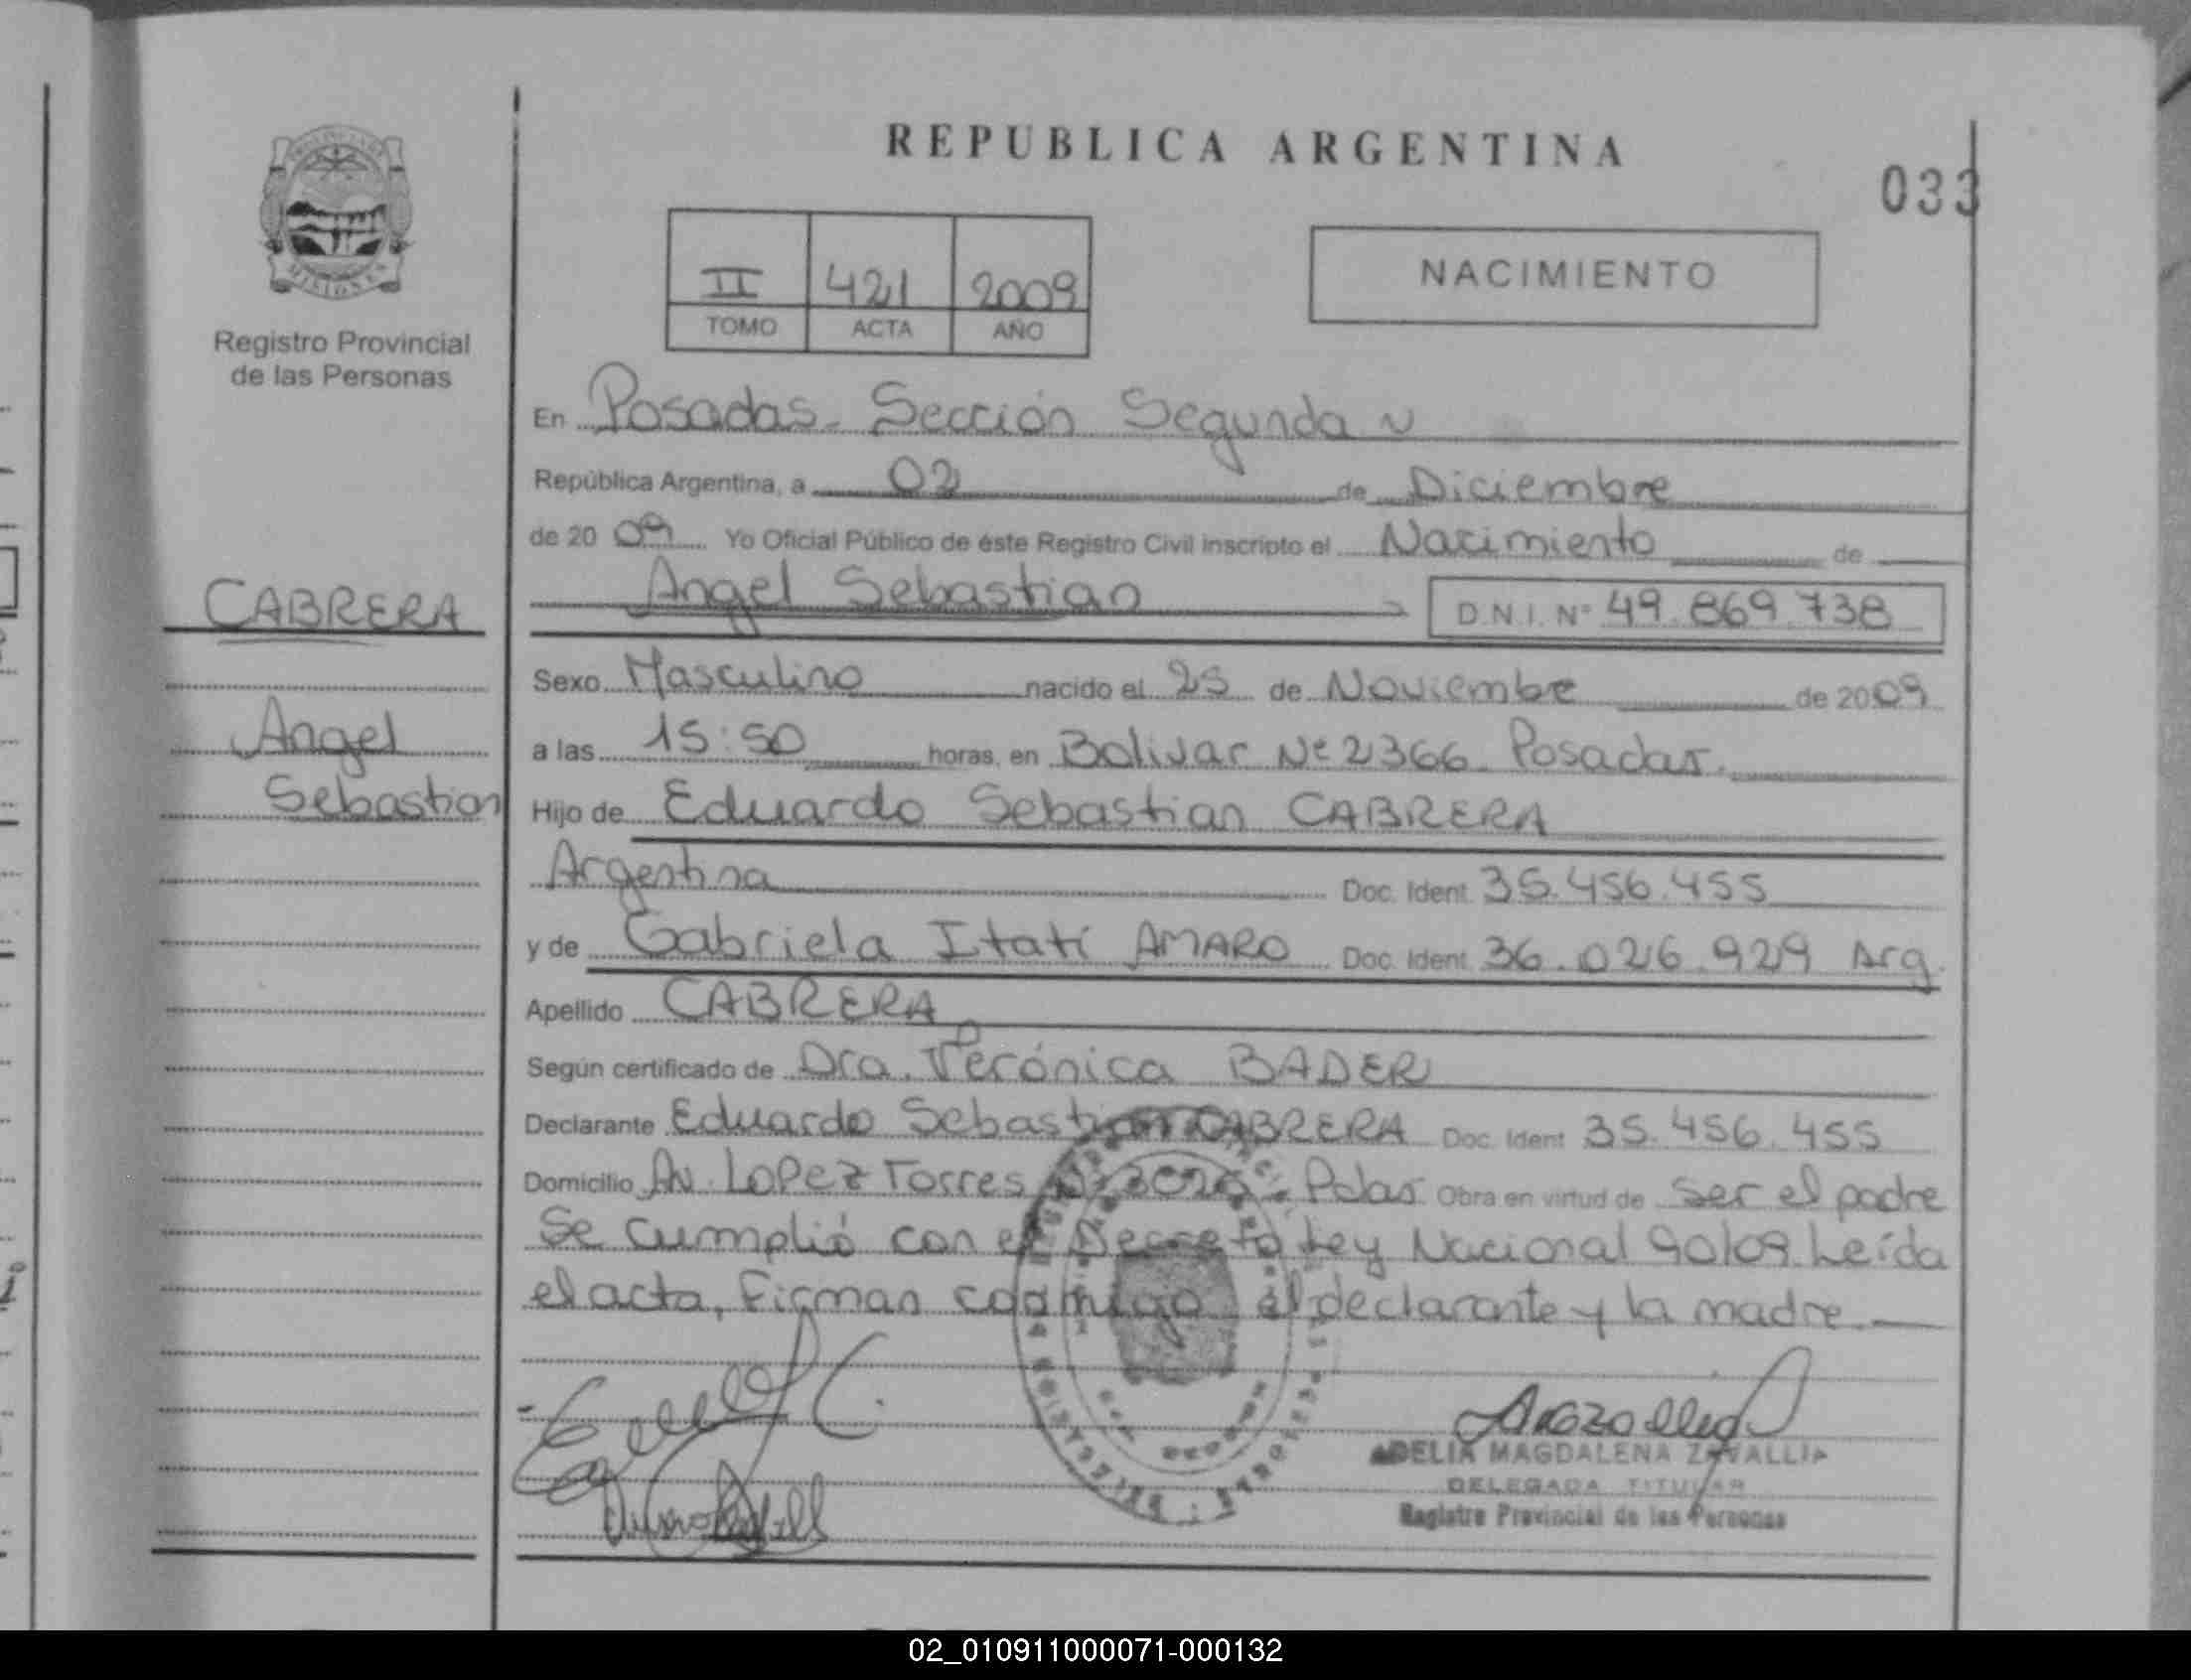 REPUBLICA ARGENTINA
033
II 421 2009
TOMO ACTA AÑO
NACIMIENTO
MISIONES
Registro Provincial
de las Personas
CABRERA
Angel
Sebastian
En Posadas - Sección Segunda
República Argentina, a 02 de Diciembre
de 20 09 Yo Oficial Público de éste Registro Civil inscripto el Nacimiento de
Angel Sebastian D.N.I. Nº 49.869.738
Sexo Masculino nacido el 25 de Noviembre de 2009
a las 15:50 horas, en Bolivar Nº 2366 - Posadas.
Hijo de Eduardo Sebastian CABRERA
Argentina Doc. Ident. 35.456.455
y de Gabriela Itatí AMARO Doc. Ident. 36.026.929 Arg.
Apellido CABRERA
Según certificado de Dra. Verónica BADER
Declarante Eduardo Sebastian CABRERA Doc. Ident 35.456.455
Domicilio Av. Lopez Torres Pdas Obra en virtud de ser el padre
Se cumplió con el Decreto Ley Nacional 90/09. Leída
el acta, Firman conmigo el declarante y la madre.
ADELIA MAGDALENA ZAVALLIA
DELEGADA TITULAR
Registro Provincial de las Personas
02_010911000071-000132